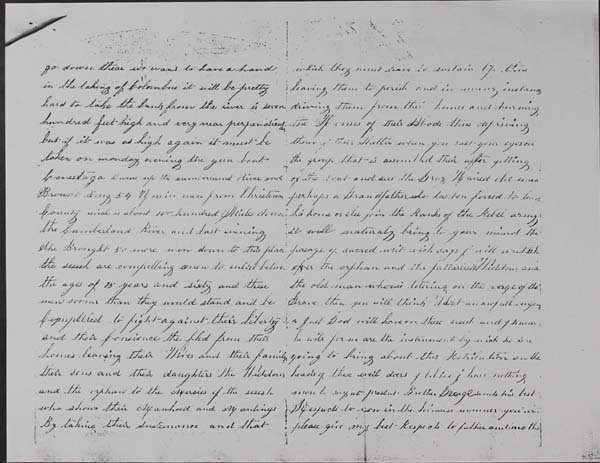 go down there we want to have a hand
in the taking of Columbus it will be pretty
hard to take the bank from the river is seven
hundred feet high and very near perpendicular
but if it was as high again it must be
taken on monday evening the gun boat
Conestoga came up the river and
Brought 54 men from Christian
County wich is about hundred Miles down
the Cumberland River and last evening
she Brought 50 more men down to this place
the secesh are compelling men to enlist between
the ages of 15 years and sixty and these
men sooner than they would stand and be
Compelled to fight against their liberty
and their Consience the fled from their
homes leaving their Wives and their family
their sons and their daughters the Widdow
and the orphan to the Mersies of the secesh
who shows their Manhood and
By taking their sustenance and that
which they must have to sustain life thus
leaving them to perish and in many instances
driving them from their homes and burning
the Houses of their Abode thus depriving
them of their Shelter when you cast your eyes on
the group that is assembled their after getting
of the boat and see the Gray Haired old man
perhaps a Grandfather who has ben forced to leave
his home or else join the Ranks of the Rebel army
it will naturaly bring to your mind the
passage of sacred writ wich says I will watch
over the orphan and the fatherless Widdow and
the old man whoes is totering on the verge of the
Grave then you will think What an awfull
a just God will have on these secesh and I know
he will for we are the instrument by wich he is
going to bring about this Retribution on the
heads of these evil doers I believe I have nothing
more to say at present Brother George sends his best
Respects to you in the kindest manner you will
please give my best Respects to father and mother